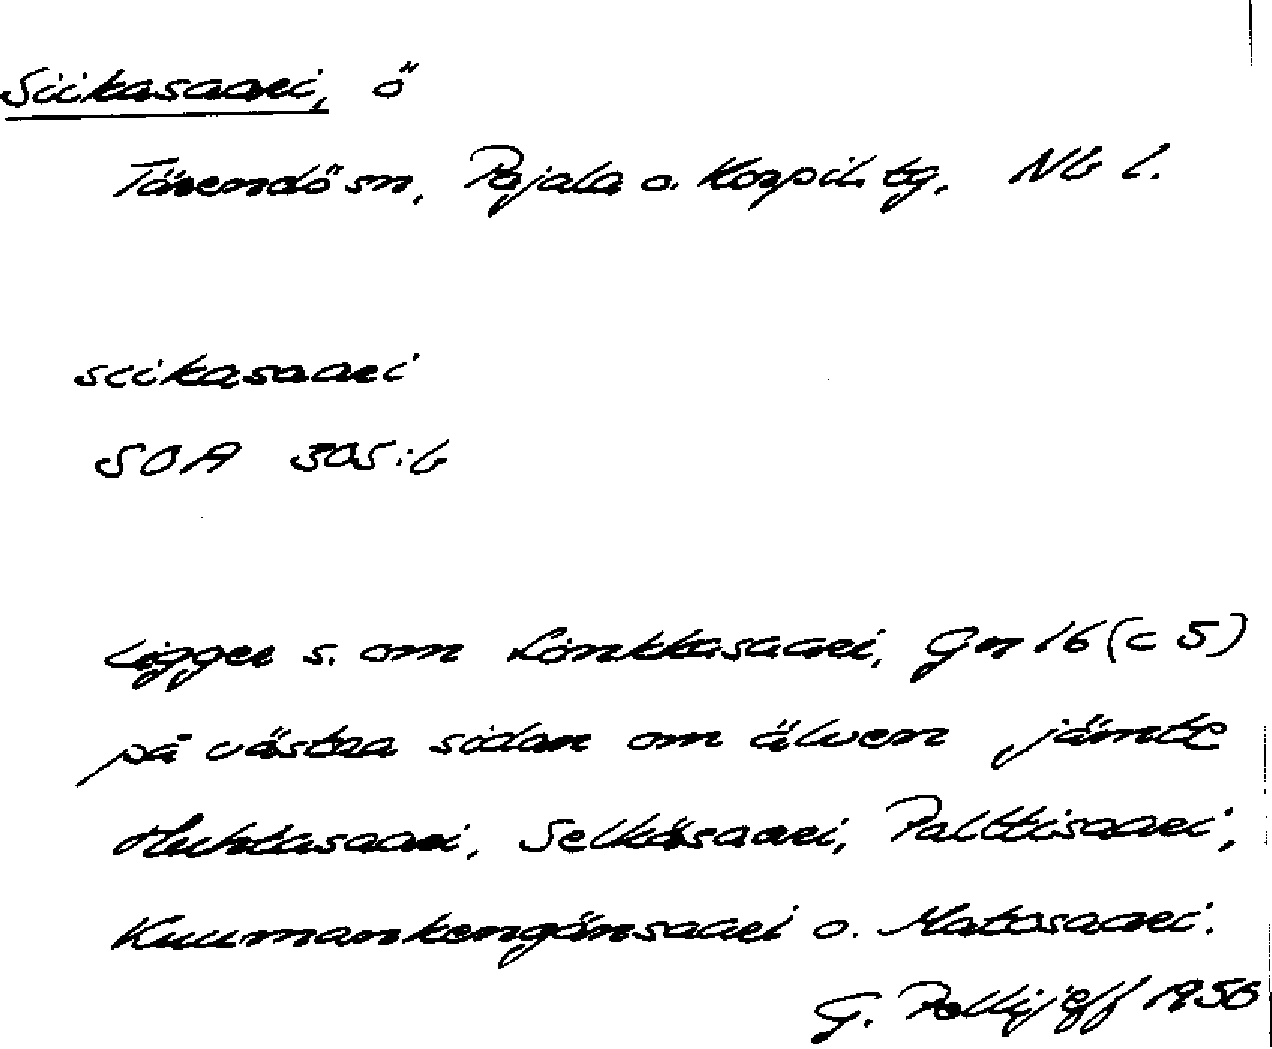 Siikasaari, ö
Tärendö sn, Pajala o. Korpil. tg, Nb l.
siikasaari
SOA 305:6
Ligger s. om Linkkasaari, Gn 16 (c 5)
på västra sidan om älven jämte
Huhtasaari, Selkäsaari, Palttisaari,
Kuumankengänsaari o. Matosaari.
G. Pellijeff 1956